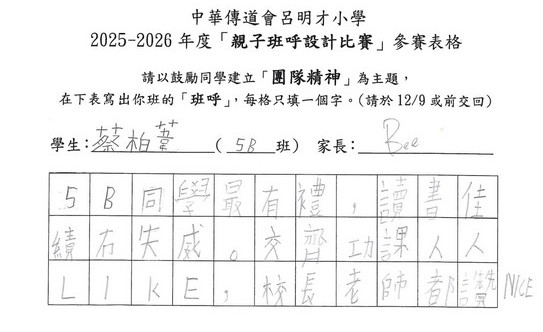 中華傳道會呂明才小學
2025-2026 年度「親子班呼設計比賽」參賽表格
請以鼓勵同學建立「團隊精神」為主題，
在下表寫出你班的「班呼」，每格只填一個字。（請於 12/9 或前交回）
學生：蔡柏葦 （ 5B 班） 家長： Bee
5B同學最有禮，讀書佳
績冇失威。交齊功課人人
LIKE，校長老師都讚NICE